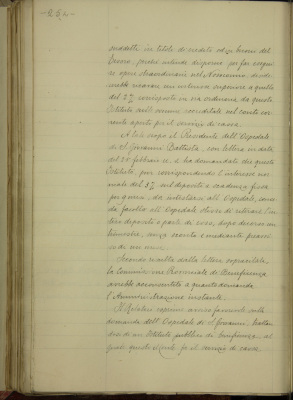 -256-
suddetta in titoli di rendita od in buoni del
Tesoro, perché intende disporne per far eseguire
opere straordinarie nel Nosocomio, desiderebbe
ricavare un interesse superiore a quello
del 2% corrisposto in via ordinaria da questo
Istituto sulle somme versate nel conto corrente
aperto per il servizio di cassa.
A tale scopo il Presidente dell'Ospedale
di S. Giovanni Battista, con lettera in data
del 25 febbraio u. s. ha domandato che questo
Istituto, pur corrispondendo l'interesse normale
del 3% sul deposito a scadenza fissa
per giorni, da intestarsi all'Ospedale, conceda
facoltà all'Ospedale stesso di ritirare l'intero
deposito o parte di esso, dopo decorso un
bimestre, senza sconto e mediante preavviso
di un mese.
Secondo risulta dalla lettera sopracitata,
la Commissione Provinciale di Beneficenza
avrebbe acconsentito a quanto domanda
l'Amministrazione instante.
Il Relatore esprime avviso favorevole sulla
domanda dell'Ospedale di S. Giovanni, trattandosi
di un Istituto pubblico di beneficenza, al
quale questo Istituto fa il servizio di cassa.